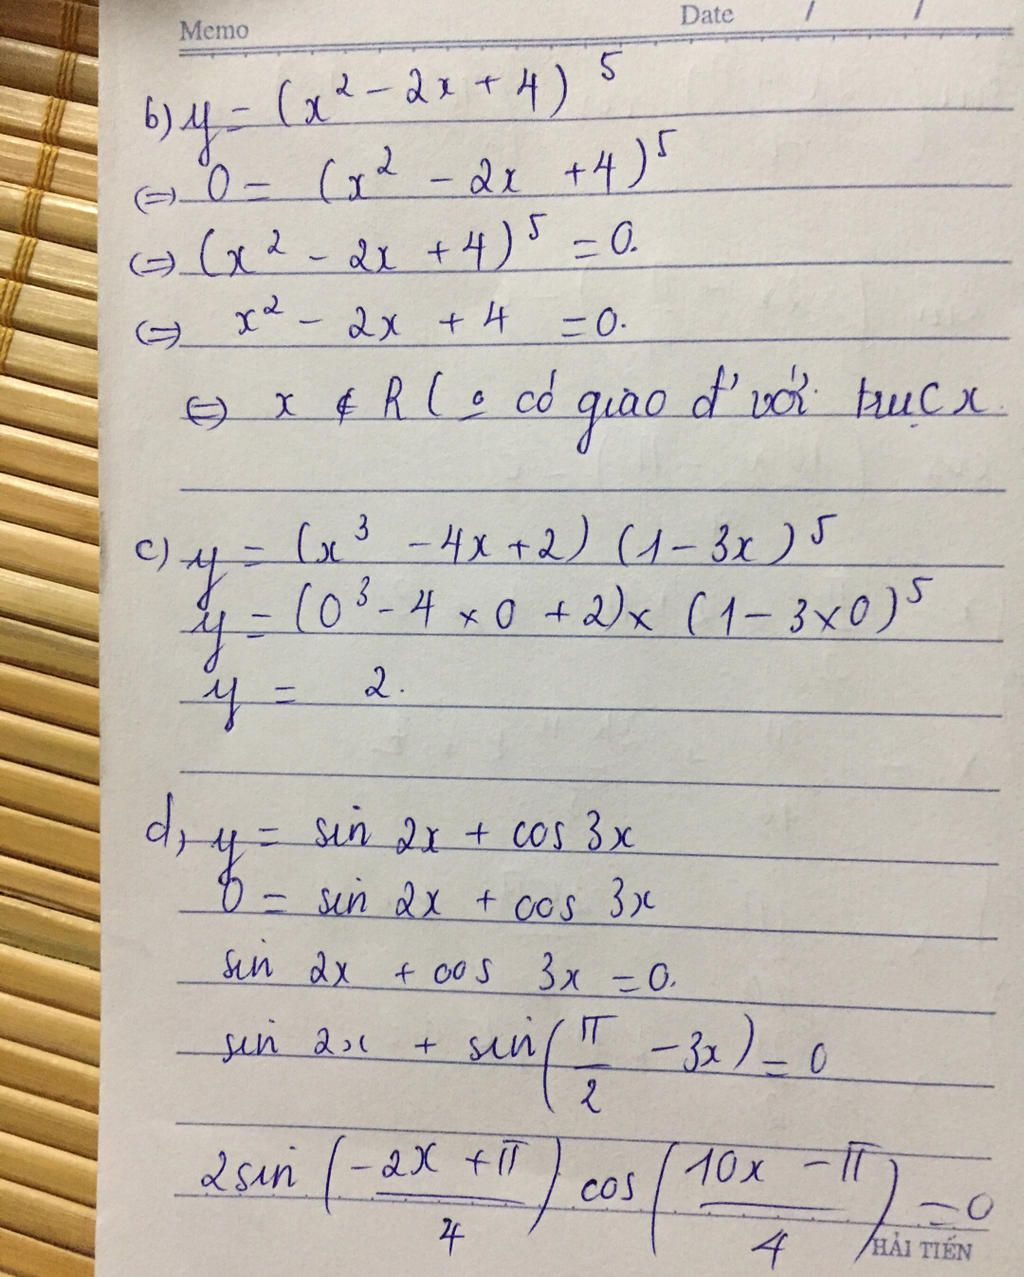 Memo Date / /
b) y = (x² - 2x + 4)⁵
⇔ 0 = (x² - 2x + 4)⁵
⇔ (x² - 2x + 4)⁵ = 0.
⇔ x² - 2x + 4 = 0.
⇔ x ∉ R ( có giao đ' với trục x.
c) y = (x³ - 4x + 2) (1 - 3x)⁵
y = (0³ - 4 × 0 + 2) × (1 - 3×0)⁵
y = 2.
d, y = sin 2x + cos 3x
0 = sin 2x + cos 3x
sin 2x + cos 3x = 0.
sin 2x + sin(π/2 - 3x) = 0
2sin((-2x + π)/4) cos((10x - π)/4) = 0
HẢI TIẾN